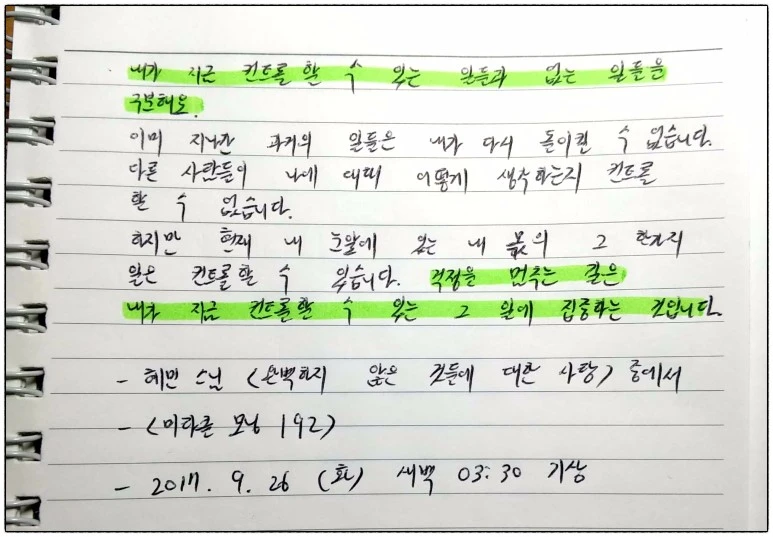 내가 지금 컨트롤 할 수 있는 일들과 없는 일들을
구분해요.
이미 지나간 과거의 일들은 내가 다시 돌이킬 수 없습니다.
다른 사람들이 나에 대해 어떻게 생각하는지 컨트롤
할 수 없습니다.
하지만 현재 내 눈앞에 있는 내 몫의 그 한가지
일은 컨트롤할 수 있습니다. 걱정을 멈추는 길은
내가 지금 컨트롤할 수 있는 그 일에 집중하는 것입니다.
- 혜민 스님 <완벽하지 않은 것들에 대한 사랑> 중에서
- <미라클 모닝 192>
- 2017. 9. 26 (화) 새벽 03:30 기상